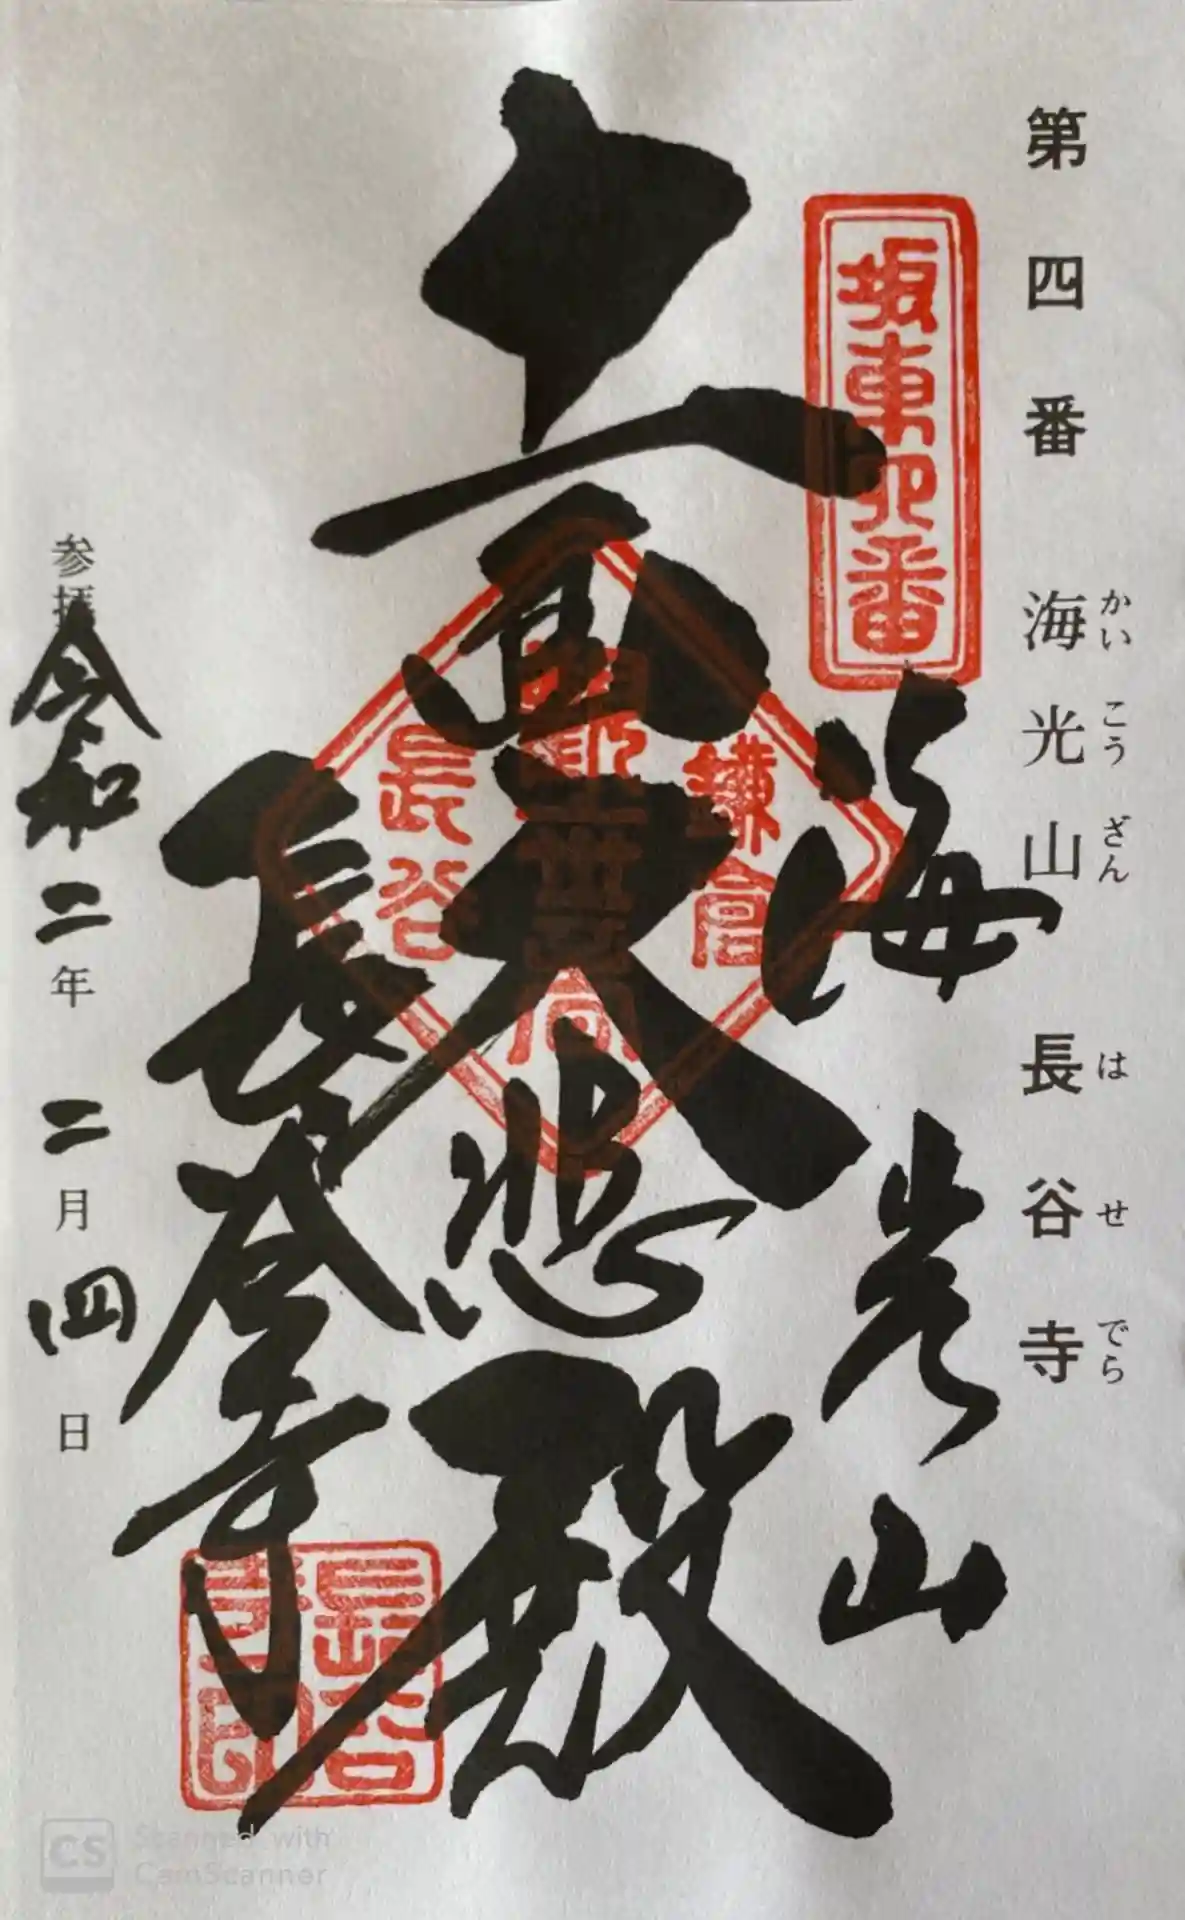 第四番 海光山 長谷寺
かいこうざん はせでら
坂東四番
海光山
十一面大悲殿
鎌倉
観世音
長谷
長谷寺
長谷寺印
参拝 令和二年 二月四日
CS Scanned with
CamScanner